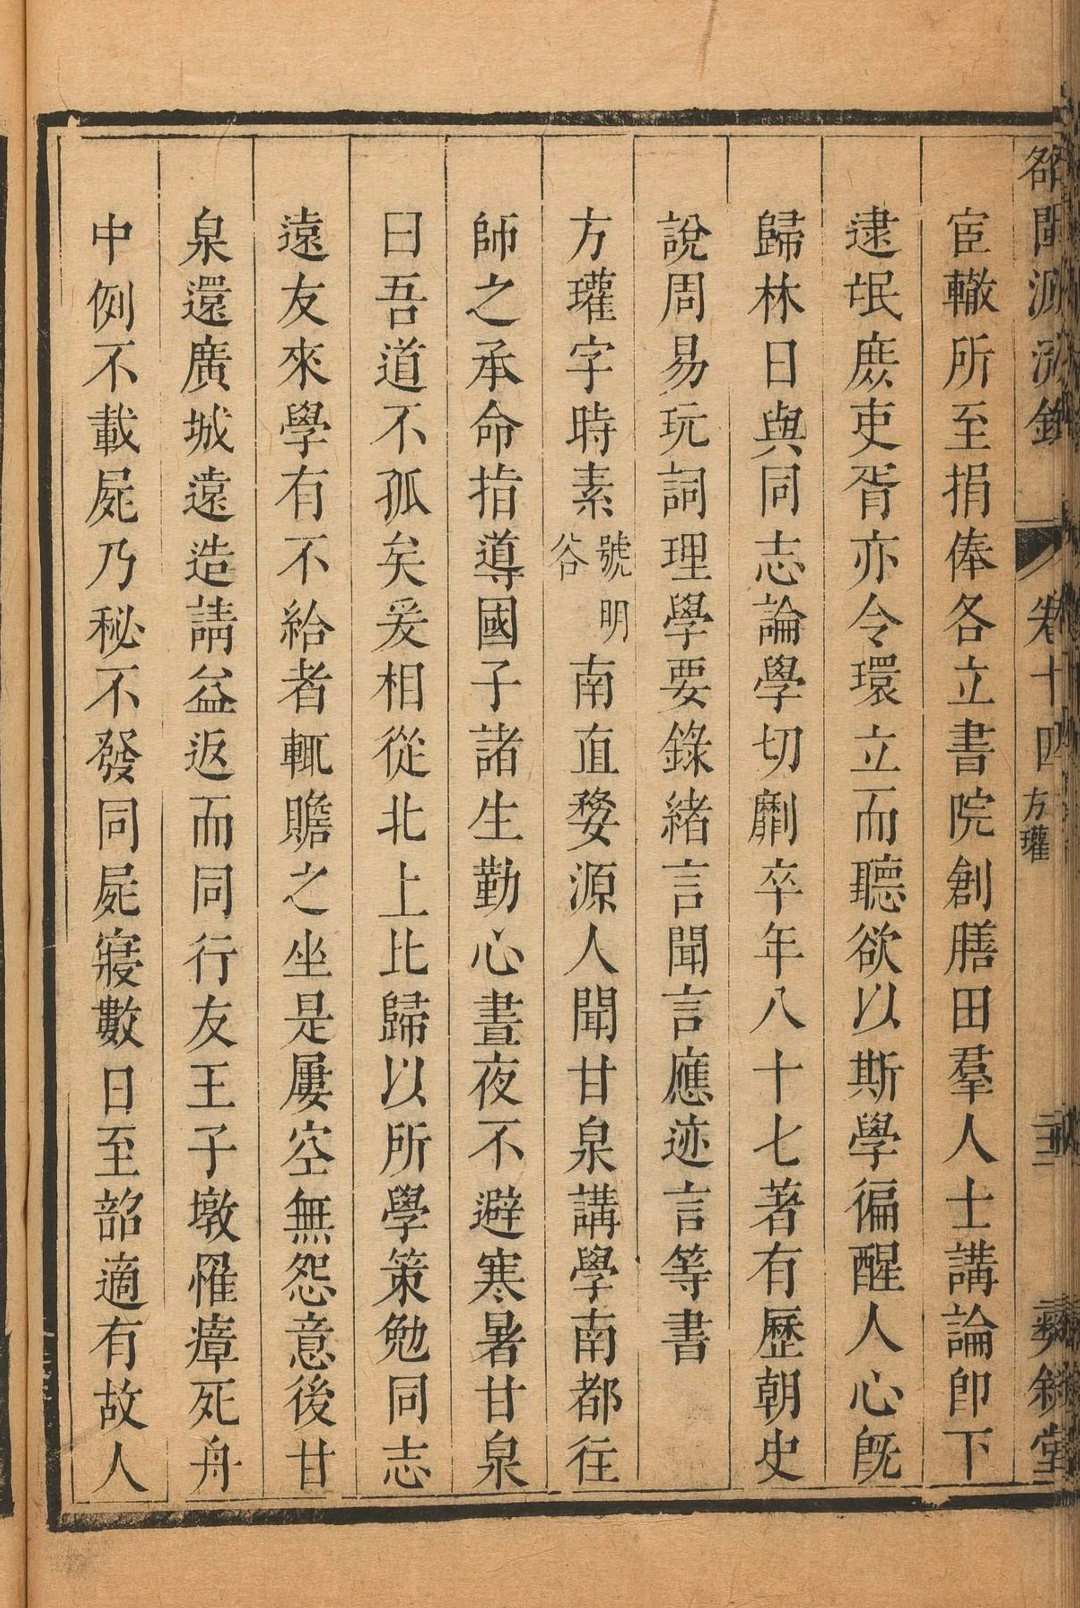 卷十四 方瓘
宦轍所至捐俸各立書院創膳田羣人士講論卽下
逮氓庶吏胥亦令環立而聽欲以斯學徧醒人心旣
歸林日與同志論學切劘卒年八十七著有歷朝史
說周易玩詞理學要錄緒言聞言應迹言等書
方瓘字時素號明谷南直婺源人聞甘泉講學南都往
師之承命指導國子諸生勤心晝夜不避寒暑甘泉
曰吾道不孤矣爰相從北上比歸以所學策勉同志
遠友來學有不給者輒贍之坐是屢空無怨意後甘
泉還廣城遠造請益返而同行友王子墩罹瘴死舟
中例不載屍乃秘不發同屍寢數日至韶適有故人